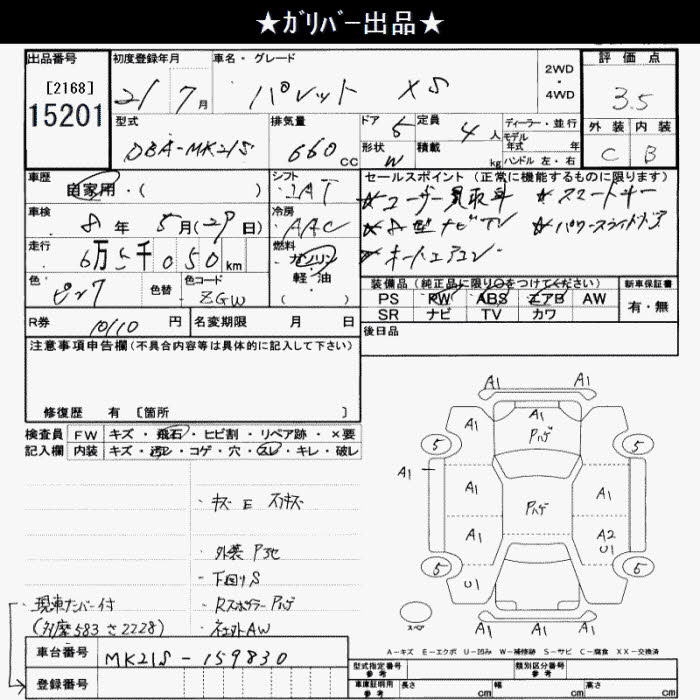 ★ｶﾞﾘﾊﾞｰ出品★
出品番号
[2168]
15201
初度登録年月
21 7月
車名・グレード
パレット XS
2WD
・
4WD
評価点
3.5
外装 内装
C B
型式
DBA-MK21S
排気量
660cc
ドア 5
形状 W
定員 4人
積載 kg
ディーラー・並行
モデル
年式 年
ハンドル 左・右
車歴
自家用・( )
シフト
IAT
セールスポイント (正常に機能するものに限ります)
☆ユーザー買取車 ☆スマートキー
☆8型ナビTV ☆パワースライドドア
☆オートエアコン
車検
8年5月(29日)
冷房
AAC
走行
6万5千050km
燃料
ガソリン
軽・油
( )
色
ピンク
色替
色コード
ZGW
装備品 (純正品に限り○をつけてください)
新車保証書
PS PW ABS エアB AW
SR ナビ TV カワ
有・無
R券 10110円
名変期限 月 日
後日品
注意事項申告欄(不具合内容等は具体的に記入して下さい)
修復歴 有 [箇所 ]
検査員 FW キズ・飛石・ヒビ割・リペア跡・×要
記入欄 内装 キズ・汚レ・コゲ・穴・スレ・キレ・破レ
・キズ E スリキズ
・外装 P他
・下回りS
・現車ナンバー付
・Rスポイラー Pハゲ
(多摩583さ2228)
・社外AW
車台番号
MK21S-159830
登録番号
A1 A1
A1 Pハゲ A1
5 5
A1
A1 Pハゲ A1
A1 A2
U1
5 5
U1
A1 A1 A1
スペア
A-キズ E-エクボ U-凹み W-補修跡 S-サビ C-腐食 XX-交換済
型式指定番号
参考
類別区分番号
参考
車庫証明用
参考
長さ cm 幅 cm 高さ cm